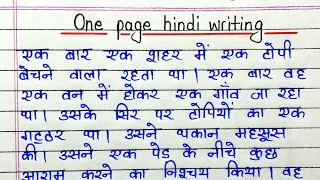 One page hindi writing
एक बार एक शहर में एक टोपी
बेचने वाला रहता था। एक बार वह
एक वन में होकर एक गाँव जा रहा
था। उसके सिर पर टोपियों का एक
गटठर था। उसने थकान महसूस
की। उसने एक पेड के नीचे कुछ
आराम करने का निश्चय किया। वह